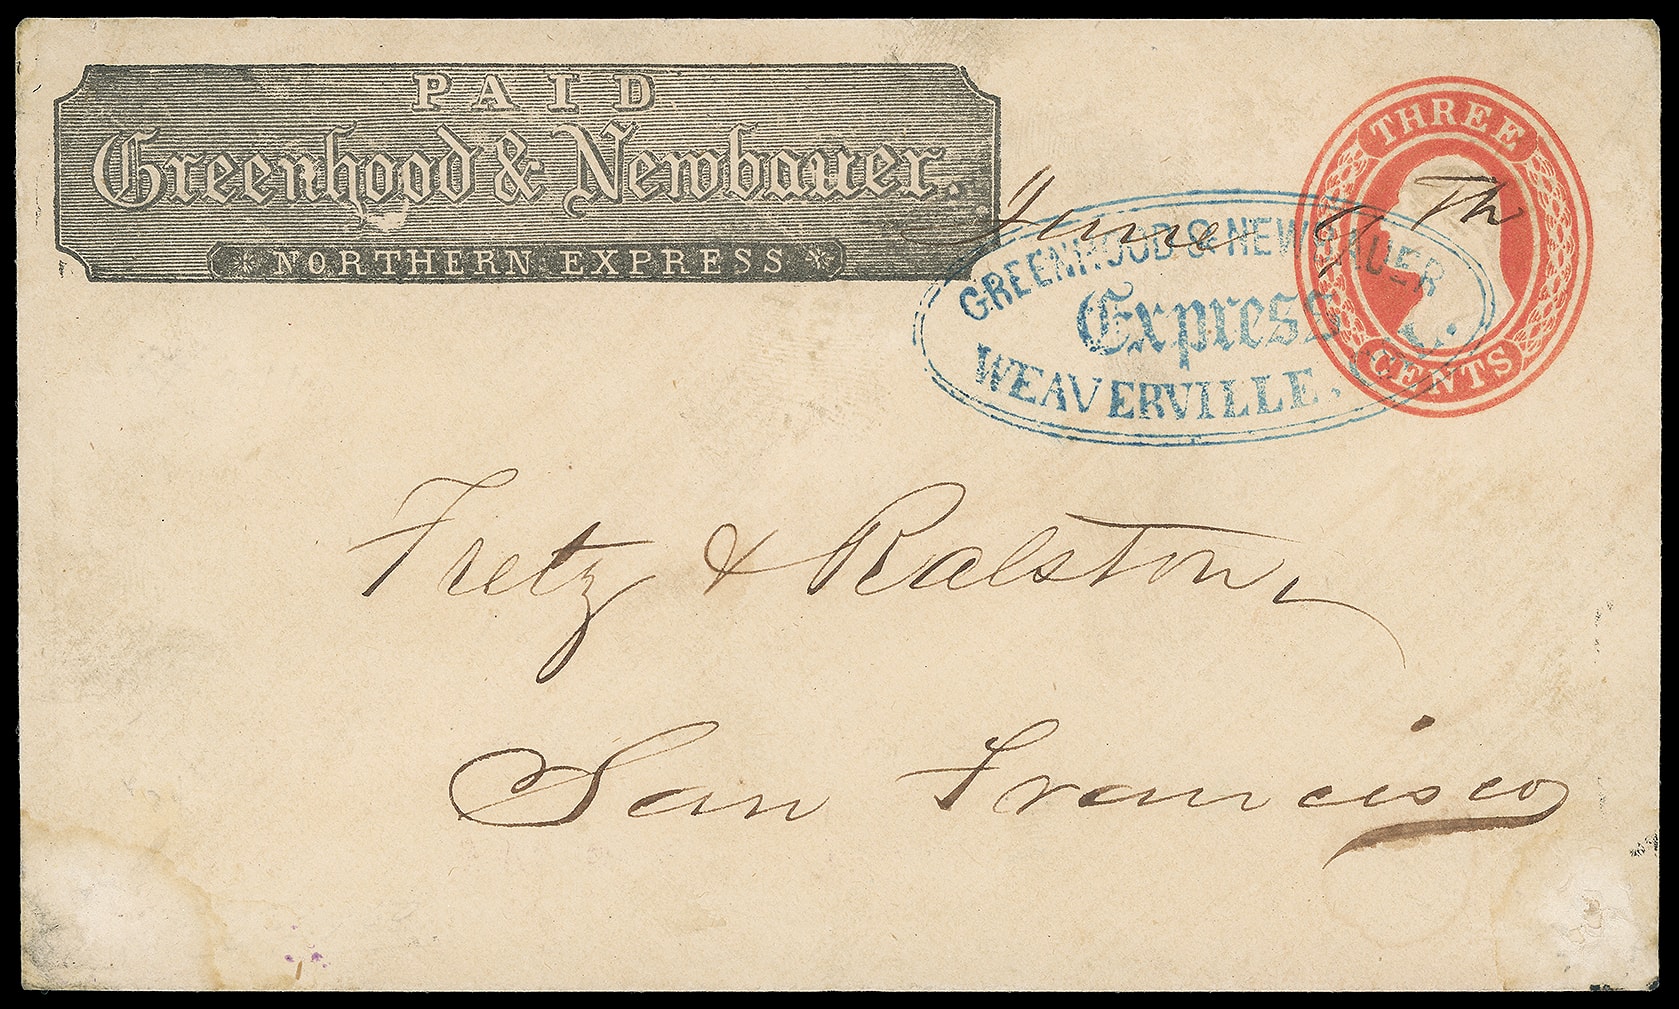 PAID
Greenhood & Newbauer.
NORTHERN EXPRESS
THREE
CENTS
June 9th
GREENHOOD & NEWBAUER
Express
WEAVERVILLE.
Fretz & Ralston,
San Francisco